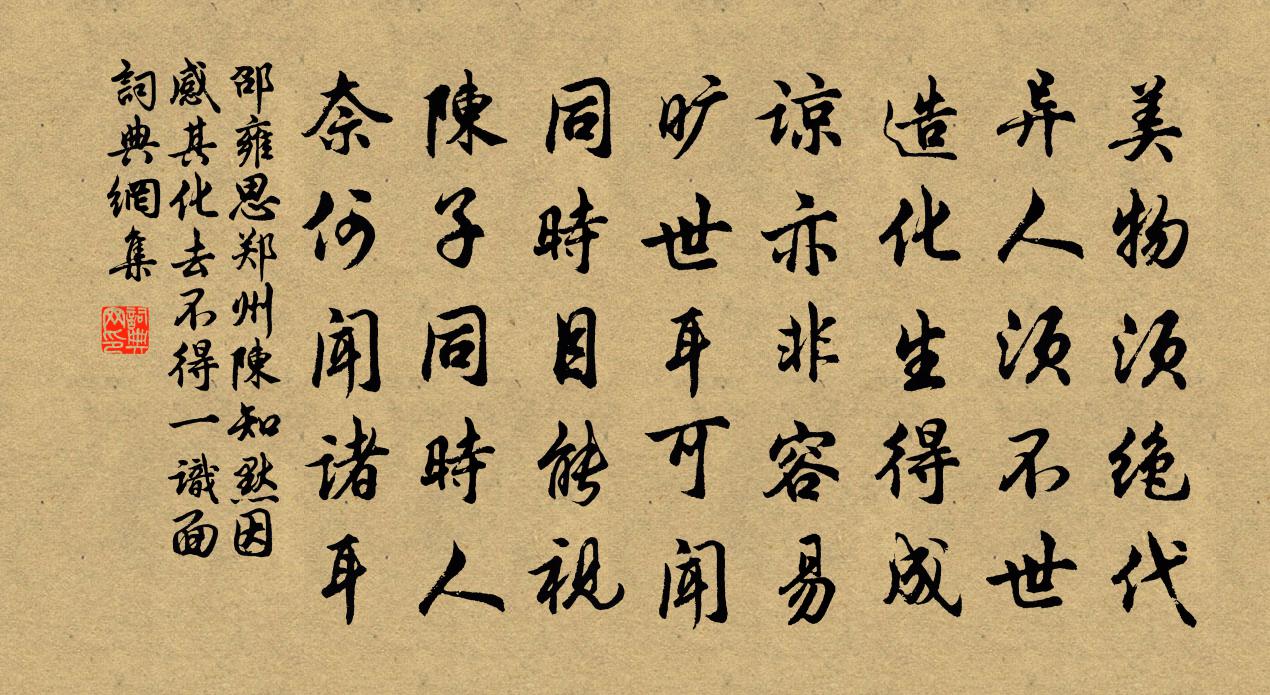 美物须绝代
异人须不世
造化生得成
谅亦非容易
旷世耳可闻
同時目能視
陳子同時人
奈何闻诸耳
邵雍思郑州陳知默因
感其化去不得一識面
詞典網集
詞典网印